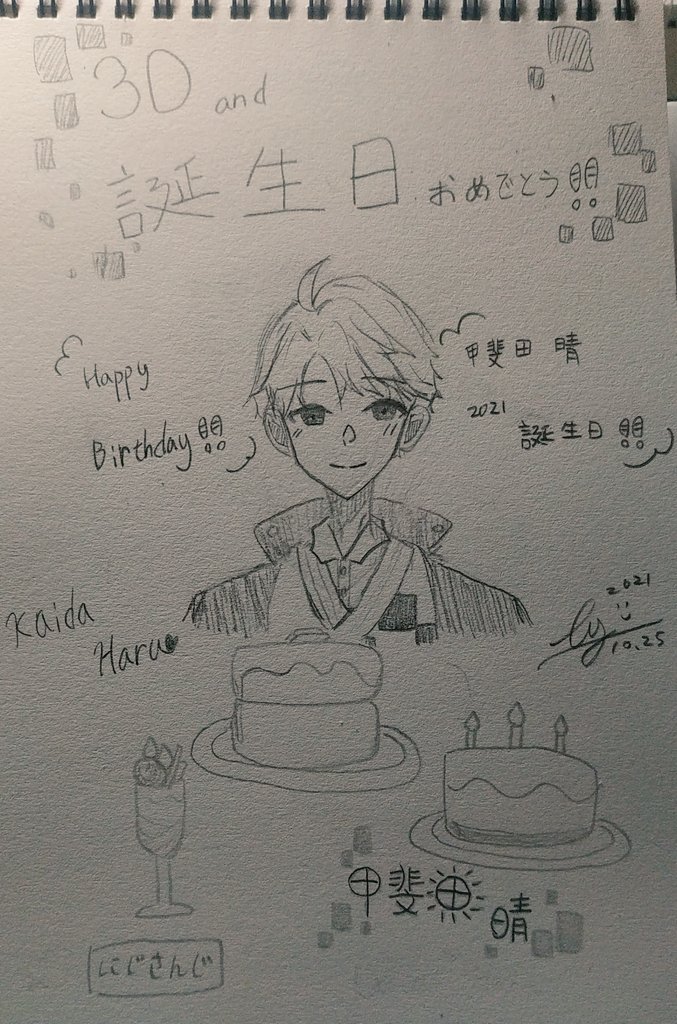 3D and
誕生日おめでとう!!
Happy
Birthday!!
甲斐田 晴
2021
誕生日!!
Kaida
Haru
2021
10.25
甲斐田
晴
にじさんじ